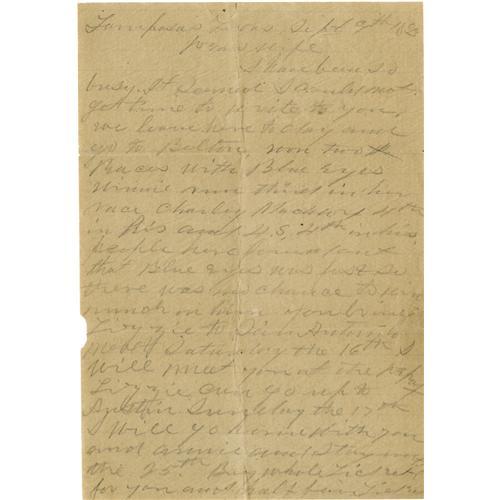 Lampasas Texas Sept 9th 188
Dear wife
I have been so
busy I could not
get time to write to you
we leave here today and
go to Belton won two
Races with Blue Eyes
Winnie run third in her
race Charley 4th
in his and U.S. 4th in his
people here found out
that Blue Eyes was hot so
there was no chance to win
much on him you bring
Lizzie to San Antonio
Saturday the 16th I
will meet you at the
Lizzie can go up to
Austin Sunday the 17th
I will go home with you
and Annie and Stay
the 25th Buy whole Ticket
for you and half for